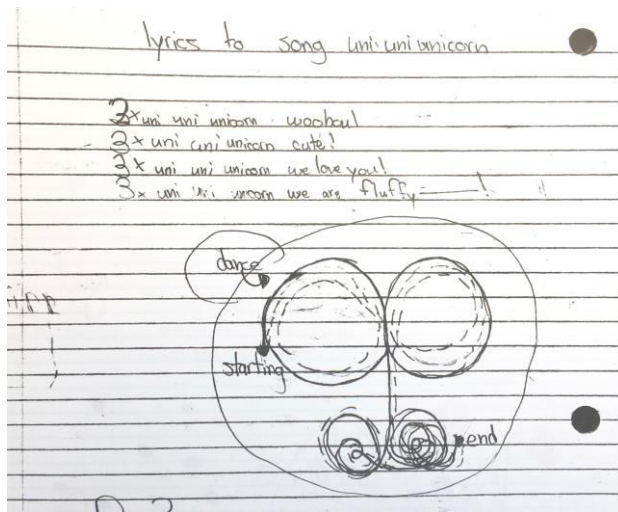 lyrics to song uni uni unicorn
3x uni uni unicorn woohou!
3x uni uni unicorn cute!
3x uni uni unicorn we love you!
3x uni uni unicorn we are fluffy!
dance
starting
end